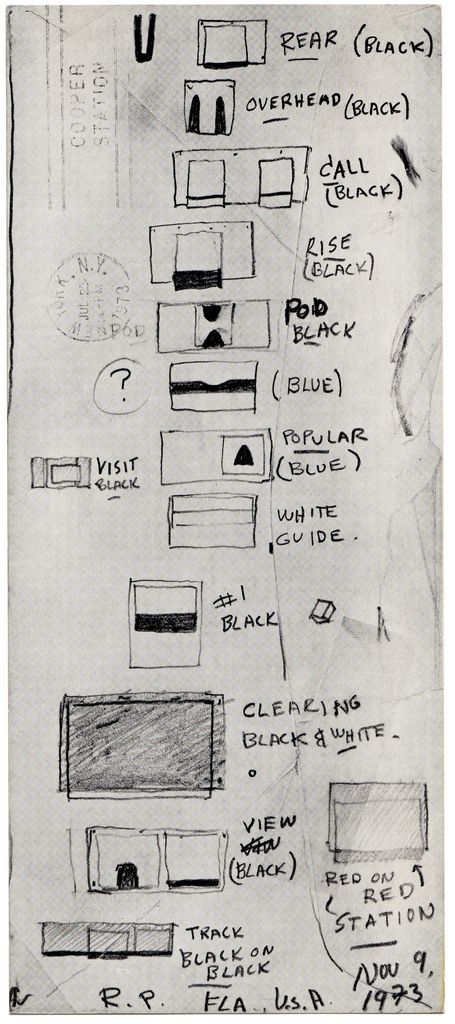 COOPER
STATION
REAR (BLACK)
OVERHEAD (BLACK)
CALL
(BLACK)
RISE
(BLACK)
N.Y.
JUL 25
1973
POD
POD
BLACK
?
(BLUE)
POPULAR
(BLUE)
VISIT
BLACK
WHITE
GUIDE.
#1
BLACK
CLEARING
BLACK & WHITE.
VIEW
(BLACK)
RED ON
RED
STATION
TRACK
BLACK ON
BLACK
NOV 9,
1973
R.P. FLA., U.S.A.